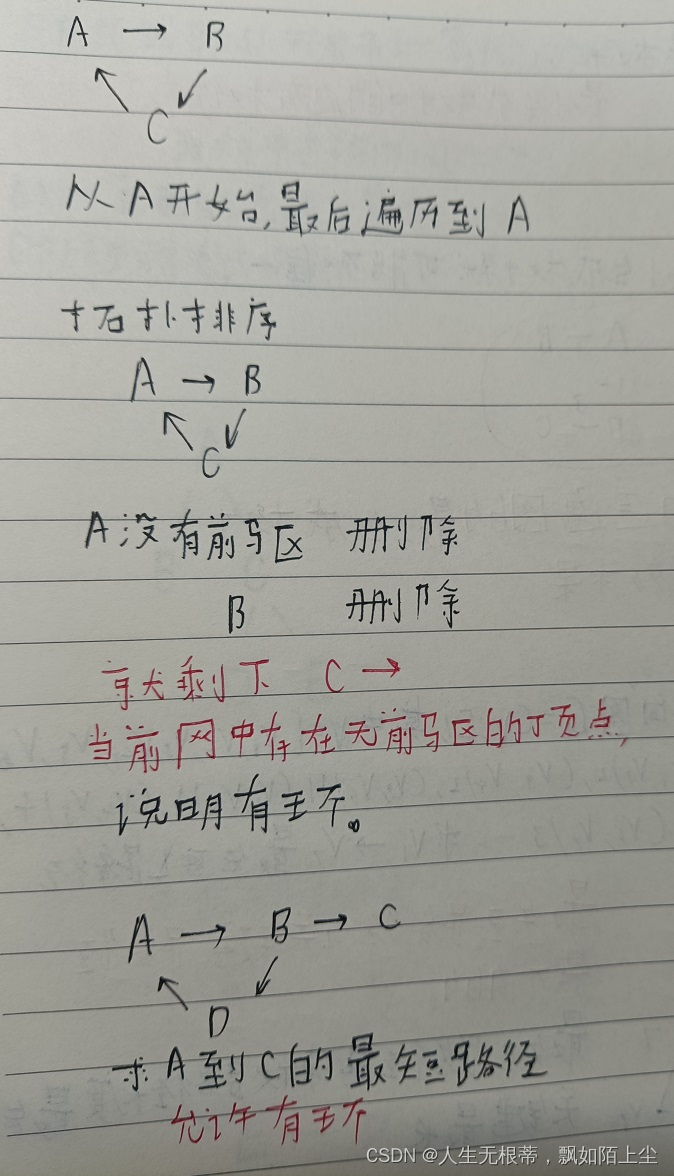 A → B
C
从A开始,最后遍历到A
拓扑排序
A → B
C
A没有前驱 删除
B 删除
就剩下 C →
当前网中存在无前驱的顶点,
说明有环。
A → B → C
D
求A到C的最短路径
允许有环
CSDN @人生无根蒂，飘如陌上尘